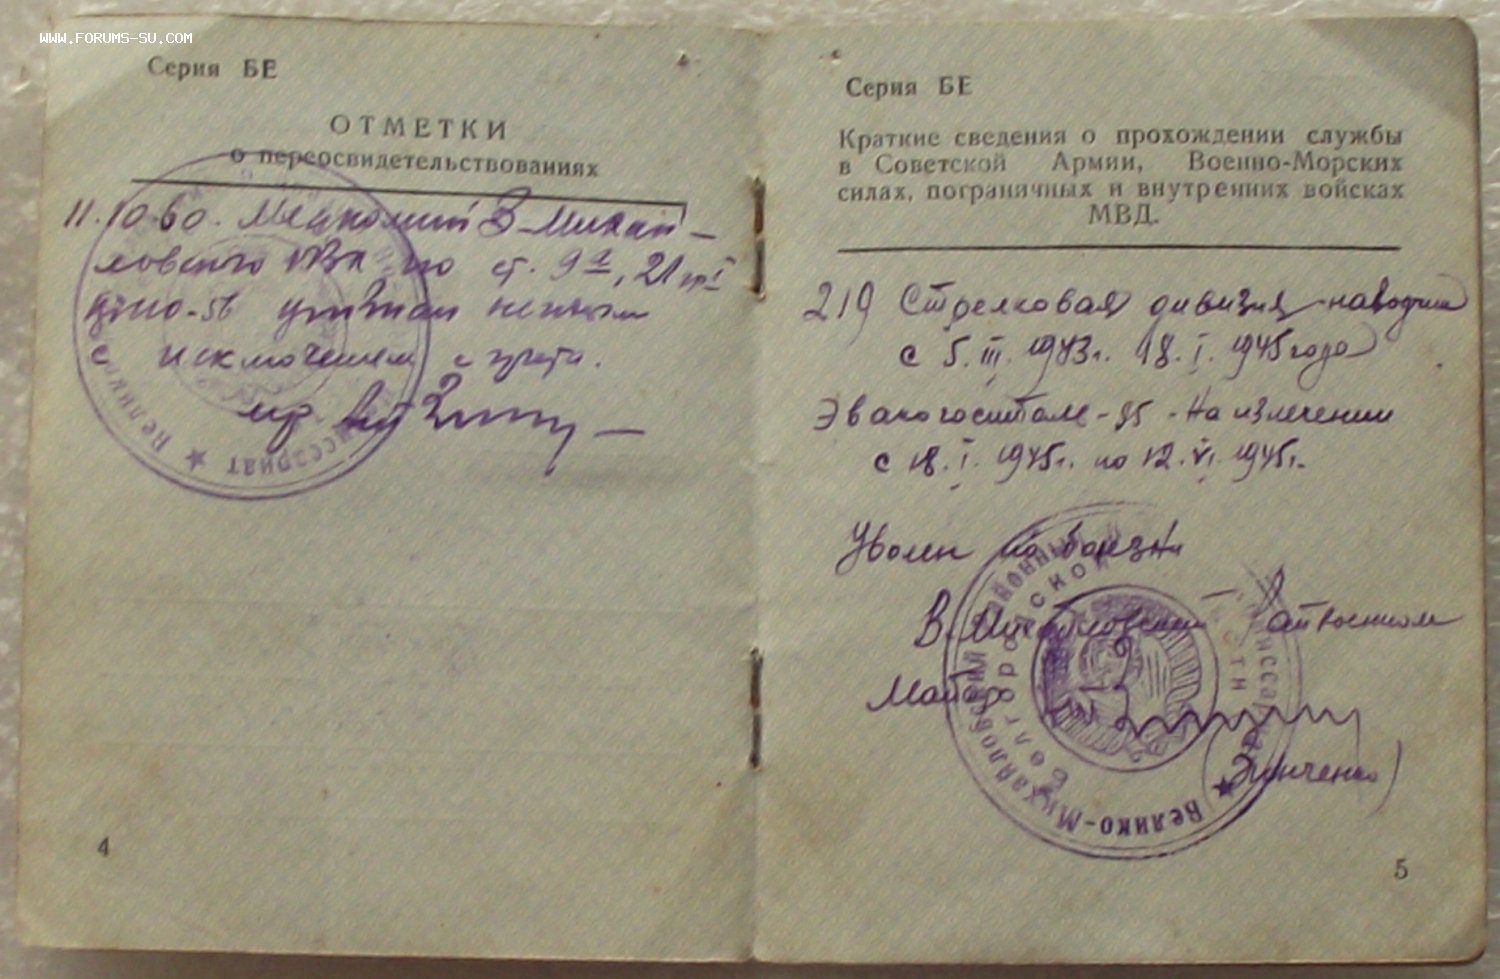 WWW.FORUMS-SU.COM
Серия БЕ
ОТМЕТКИ
о переосвидетельствованиях
11.10.60. Медкомиссией В-Михай-
ловского РВК по ст. 9
с исключением с учета.
4
Серия БЕ
Краткие сведения о прохождении службы
в Советской Армии, Военно-Морских
силах, пограничных и внутренних войсках
МВД.
219 Стрелковая дивизия - наводчик
с 5.III.1943г. 18.I.1945 года
Эвакогоспиталь - - На излечении
с 18.I.1945г. по 12.VI.1945г.
Уволен по болезни
В. Михайловский Райвоенком
Майор
(Зинченко)
Велико-Михайловский районный комиссариат
Белгородской области
5